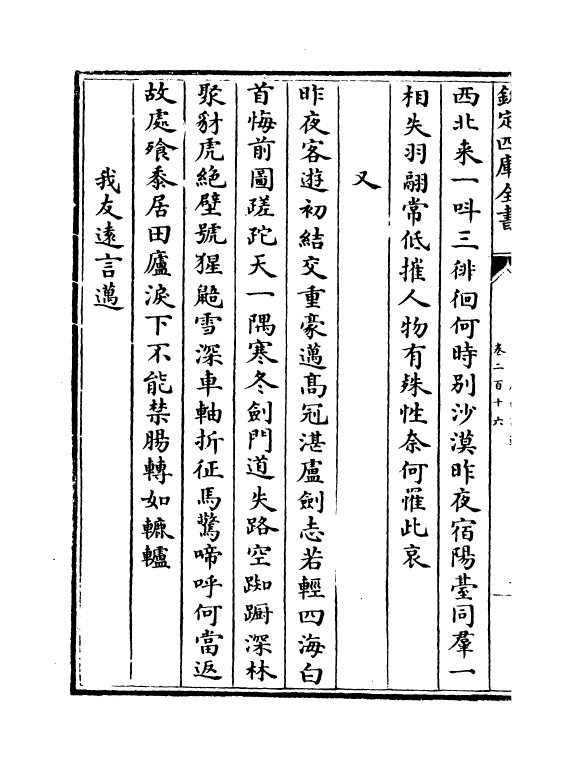 欽定四庫全書
卷二百十六
西北来一呌三徘徊何時别沙漠昨夜宿陽臺同羣一
相失羽翮常低摧人物有殊性奈何罹此哀
又
昨夜客遊初結交重豪邁髙冠湛盧劍志若輕四海白
首悔前圖蹉跎天一隅寒冬劍門道失路空踟蹰深林
聚豺虎絶壁號猩鼯雪深車軸折征馬驚啼呼何當返
故處飱黍居田廬淚下不能禁腸轉如轆轤
我友遠言邁